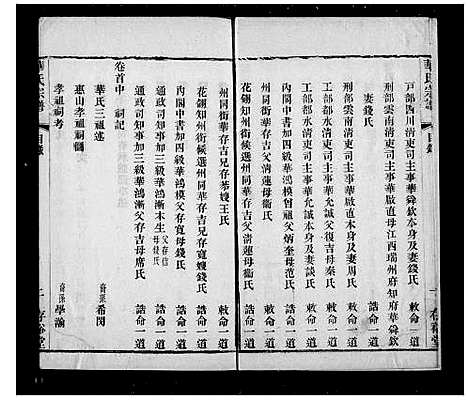 華氏宗譜 目錄 一 存裕堂
戶部四川清吏司主事華舜欽本身及妻錢氏 敕命一道
刑部雲南清吏司主事華啟直母江西瑞州府知府華舜欽
妻錢氏 誥命一道
刑部雲南清吏司主事華啟直本身及妻周氏 敕命一道
工部都水清吏司主事華允誠父復吉母秦氏 敕命一道
工部都水清吏司主事華允誠本身及妻談氏 敕命一道
內閣中書加四級華鴻模曾祖父炳奎母范氏 誥命一道
花翎知州銜候選州同華存吉父清蓮母衢氏 誥命一道
州同銜華存吉兄存恭嫂王氏 敕命一道
花翎知州銜候選州同華存吉兄存寬嫂錢氏 誥命一道
內閣中書加四級華鴻模父存寬母錢氏 誥命一道
通政司知事加三級華鴻漸本生父存恭母錢氏 誥命一道
通政司知事加三級華鴻漸父存吉母席氏 誥命一道
卷首中 祠記
華氏三祖述 裔孫希閔
惠山孝祖祠
孝祖祠考 裔孫學瀚
華氏宗譜 目錄 二 存裕堂